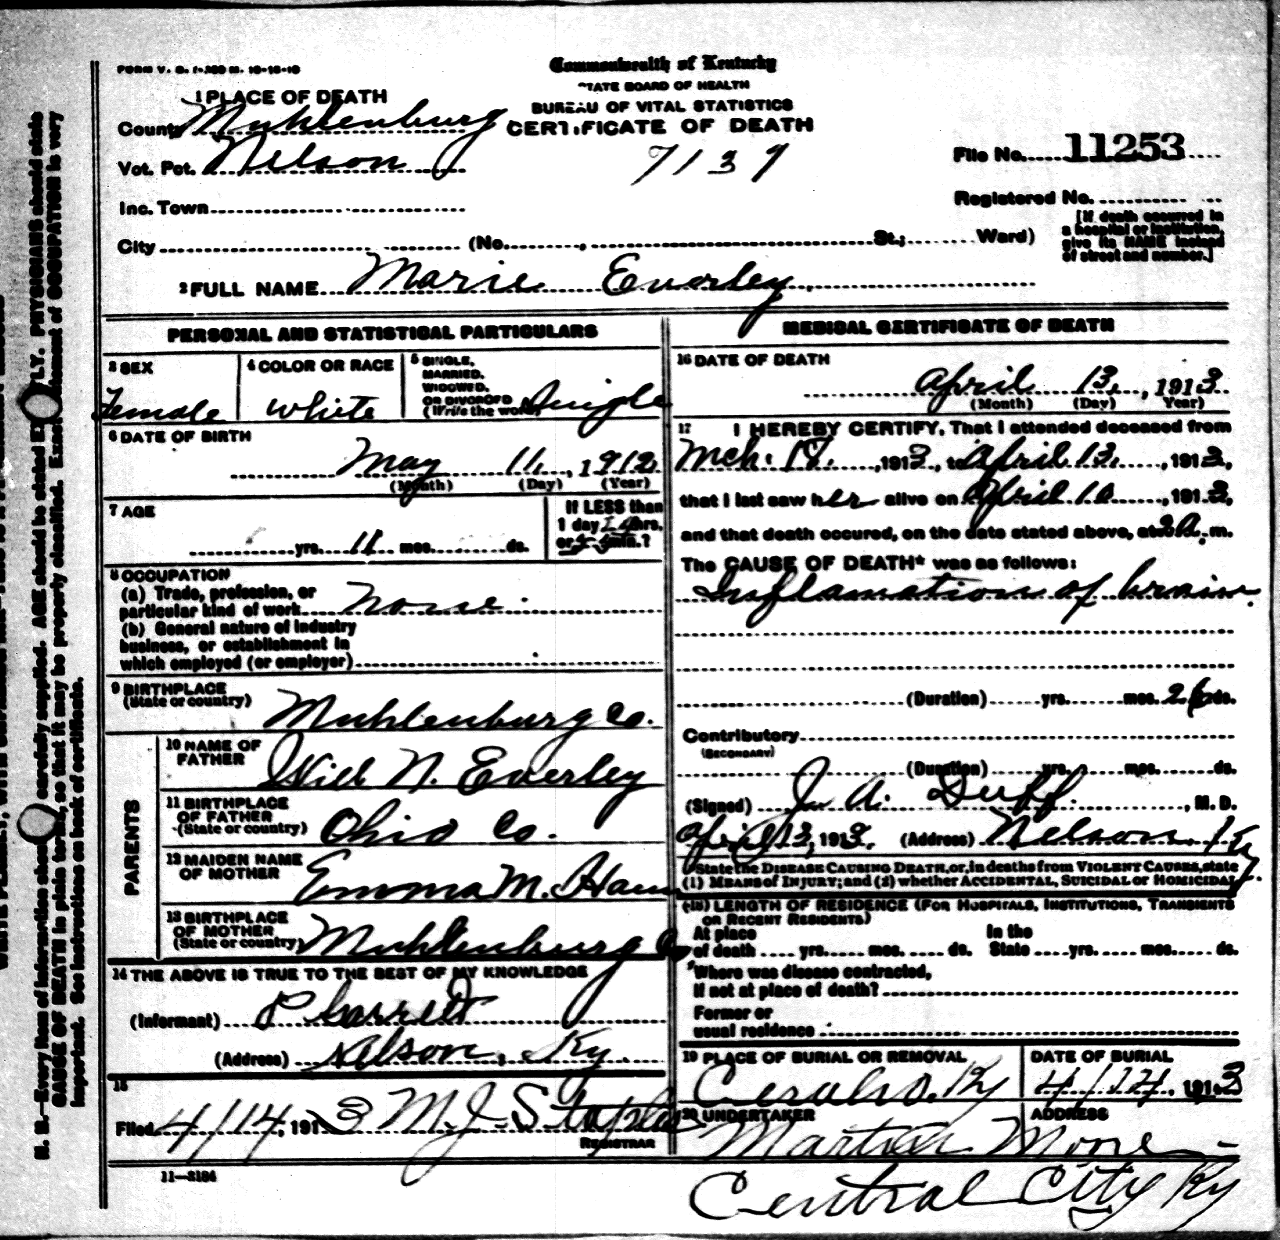 FORM V. S. 1-
Commonwealth of Kentucky
STATE BOARD OF HEALTH
BUREAU OF VITAL STATISTICS
CERTIFICATE OF DEATH
7139
File No. 11253
Registered No.
[If death occurred in a hospital or institution, give its NAME instead of street and number.]
1 PLACE OF DEATH
County Muhlenburg
Vot. Pct. Nelson
Inc. Town
City (No. , St.; Ward)
2 FULL NAME Marie Everley
PERSONAL AND STATISTICAL PARTICULARS
3 SEX Female
4 COLOR OR RACE White
5 SINGLE, MARRIED, WIDOWED, OR DIVORCED (Write the word) Single
6 DATE OF BIRTH
May 11, 1912
(Month) (Day) (Year)
7 AGE
yrs. 11 mos. ds.
If LESS than 1 day hrs. or min.?
8 OCCUPATION
(a) Trade, profession, or
particular kind of work None.
(b) General nature of industry
business, or establishment in
which employed (or employer)
9 BIRTHPLACE
(State or country) Muhlenburg Co.
PARENTS
10 NAME OF FATHER Will N. Everley
11 BIRTHPLACE OF FATHER
(State or country) Ohio Co.
12 MAIDEN NAME OF MOTHER Emma M.
13 BIRTHPLACE OF MOTHER
(State or country) Muhlenburg Co
14 THE ABOVE IS TRUE TO THE BEST OF MY KNOWLEDGE
(Informant) P Garrett
(Address) Nelson, Ky.
15
Filed 4/14, 1913 M. J.
REGISTRAR
11—3184
MEDICAL CERTIFICATE OF DEATH
16 DATE OF DEATH
April 13, 1913
(Month) (Day) Year)
17 I HEREBY CERTIFY, That I attended deceased from
Mch. , 1913, to April 13, 1913,
that I last saw her alive on April 10, 1913,
and that death occured, on the date stated above, at m.
The CAUSE OF DEATH* was as follows:
Inflamation of brain.
(Duration) yrs. mos. 26 ds.
Contributory
(SECONDARY)
(Duration) yrs. mos. ds.
(Signed) J. A. Duff, M. D.
April 13, 1913. (Address) Nelson, Ky.
*State the DISEASE CAUSING DEATH, or, in deaths from VIOLENT CAUSES, state
(1) MEANS of INJURY; and (2) whether ACCIDENTAL, SUICIDAL or HOMICIDAL
(18) LENGTH OF RESIDENCE (FOR HOSPITALS, INSTITUTIONS, TRANSIENTS
OR RECENT RESIDENTS)
At place of death yrs. mos. ds. In the State yrs. mos. ds.
Where was disease contracted,
If not at place of death?
Former or
usual residence
19 PLACE OF BURIAL OR REMOVAL Ceralvo. Ky
DATE OF BURIAL 4/14, 1913
20 UNDERTAKER ADDRESS
Martin Moore -
Central City Ky
N. B.—Every item of information should be carefully supplied. AGE should be stated EXACTLY. PHYSICIANS should state
CAUSE OF DEATH in plain terms, so that it may be properly classified. Exact statement of OCCUPATION is very
important. See instructions on back of certificate.